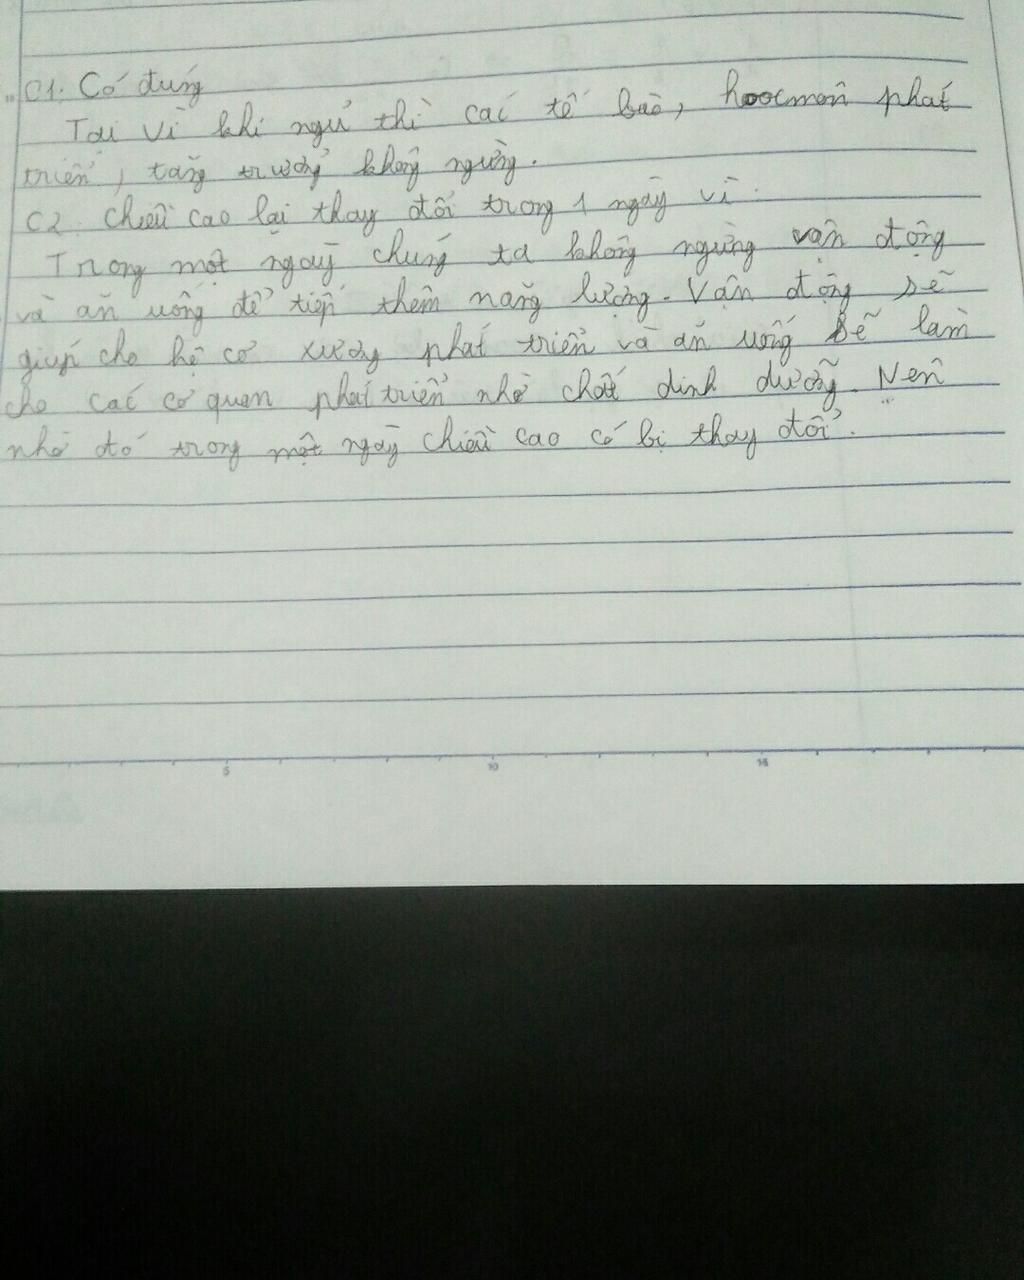 C1. Có đúng
Tại vì khi ngủ thì các tế bào, hoocmon phát
triển, tăng trưởng không ngừng.
C2. Chiều cao lại thay đổi trong 1 ngày vì
Trong một ngày chúng ta không ngừng vận động
và ăn uống để tiếp thêm năng lượng. Vận động sẽ
giúp cho hệ cơ xương phát triển và ăn uống sẽ làm
cho các cơ quan phát triển nhờ chất dinh dưỡng. Nên
nhờ đó trong một ngày chiều cao có bị thay đổi.
5 10 15